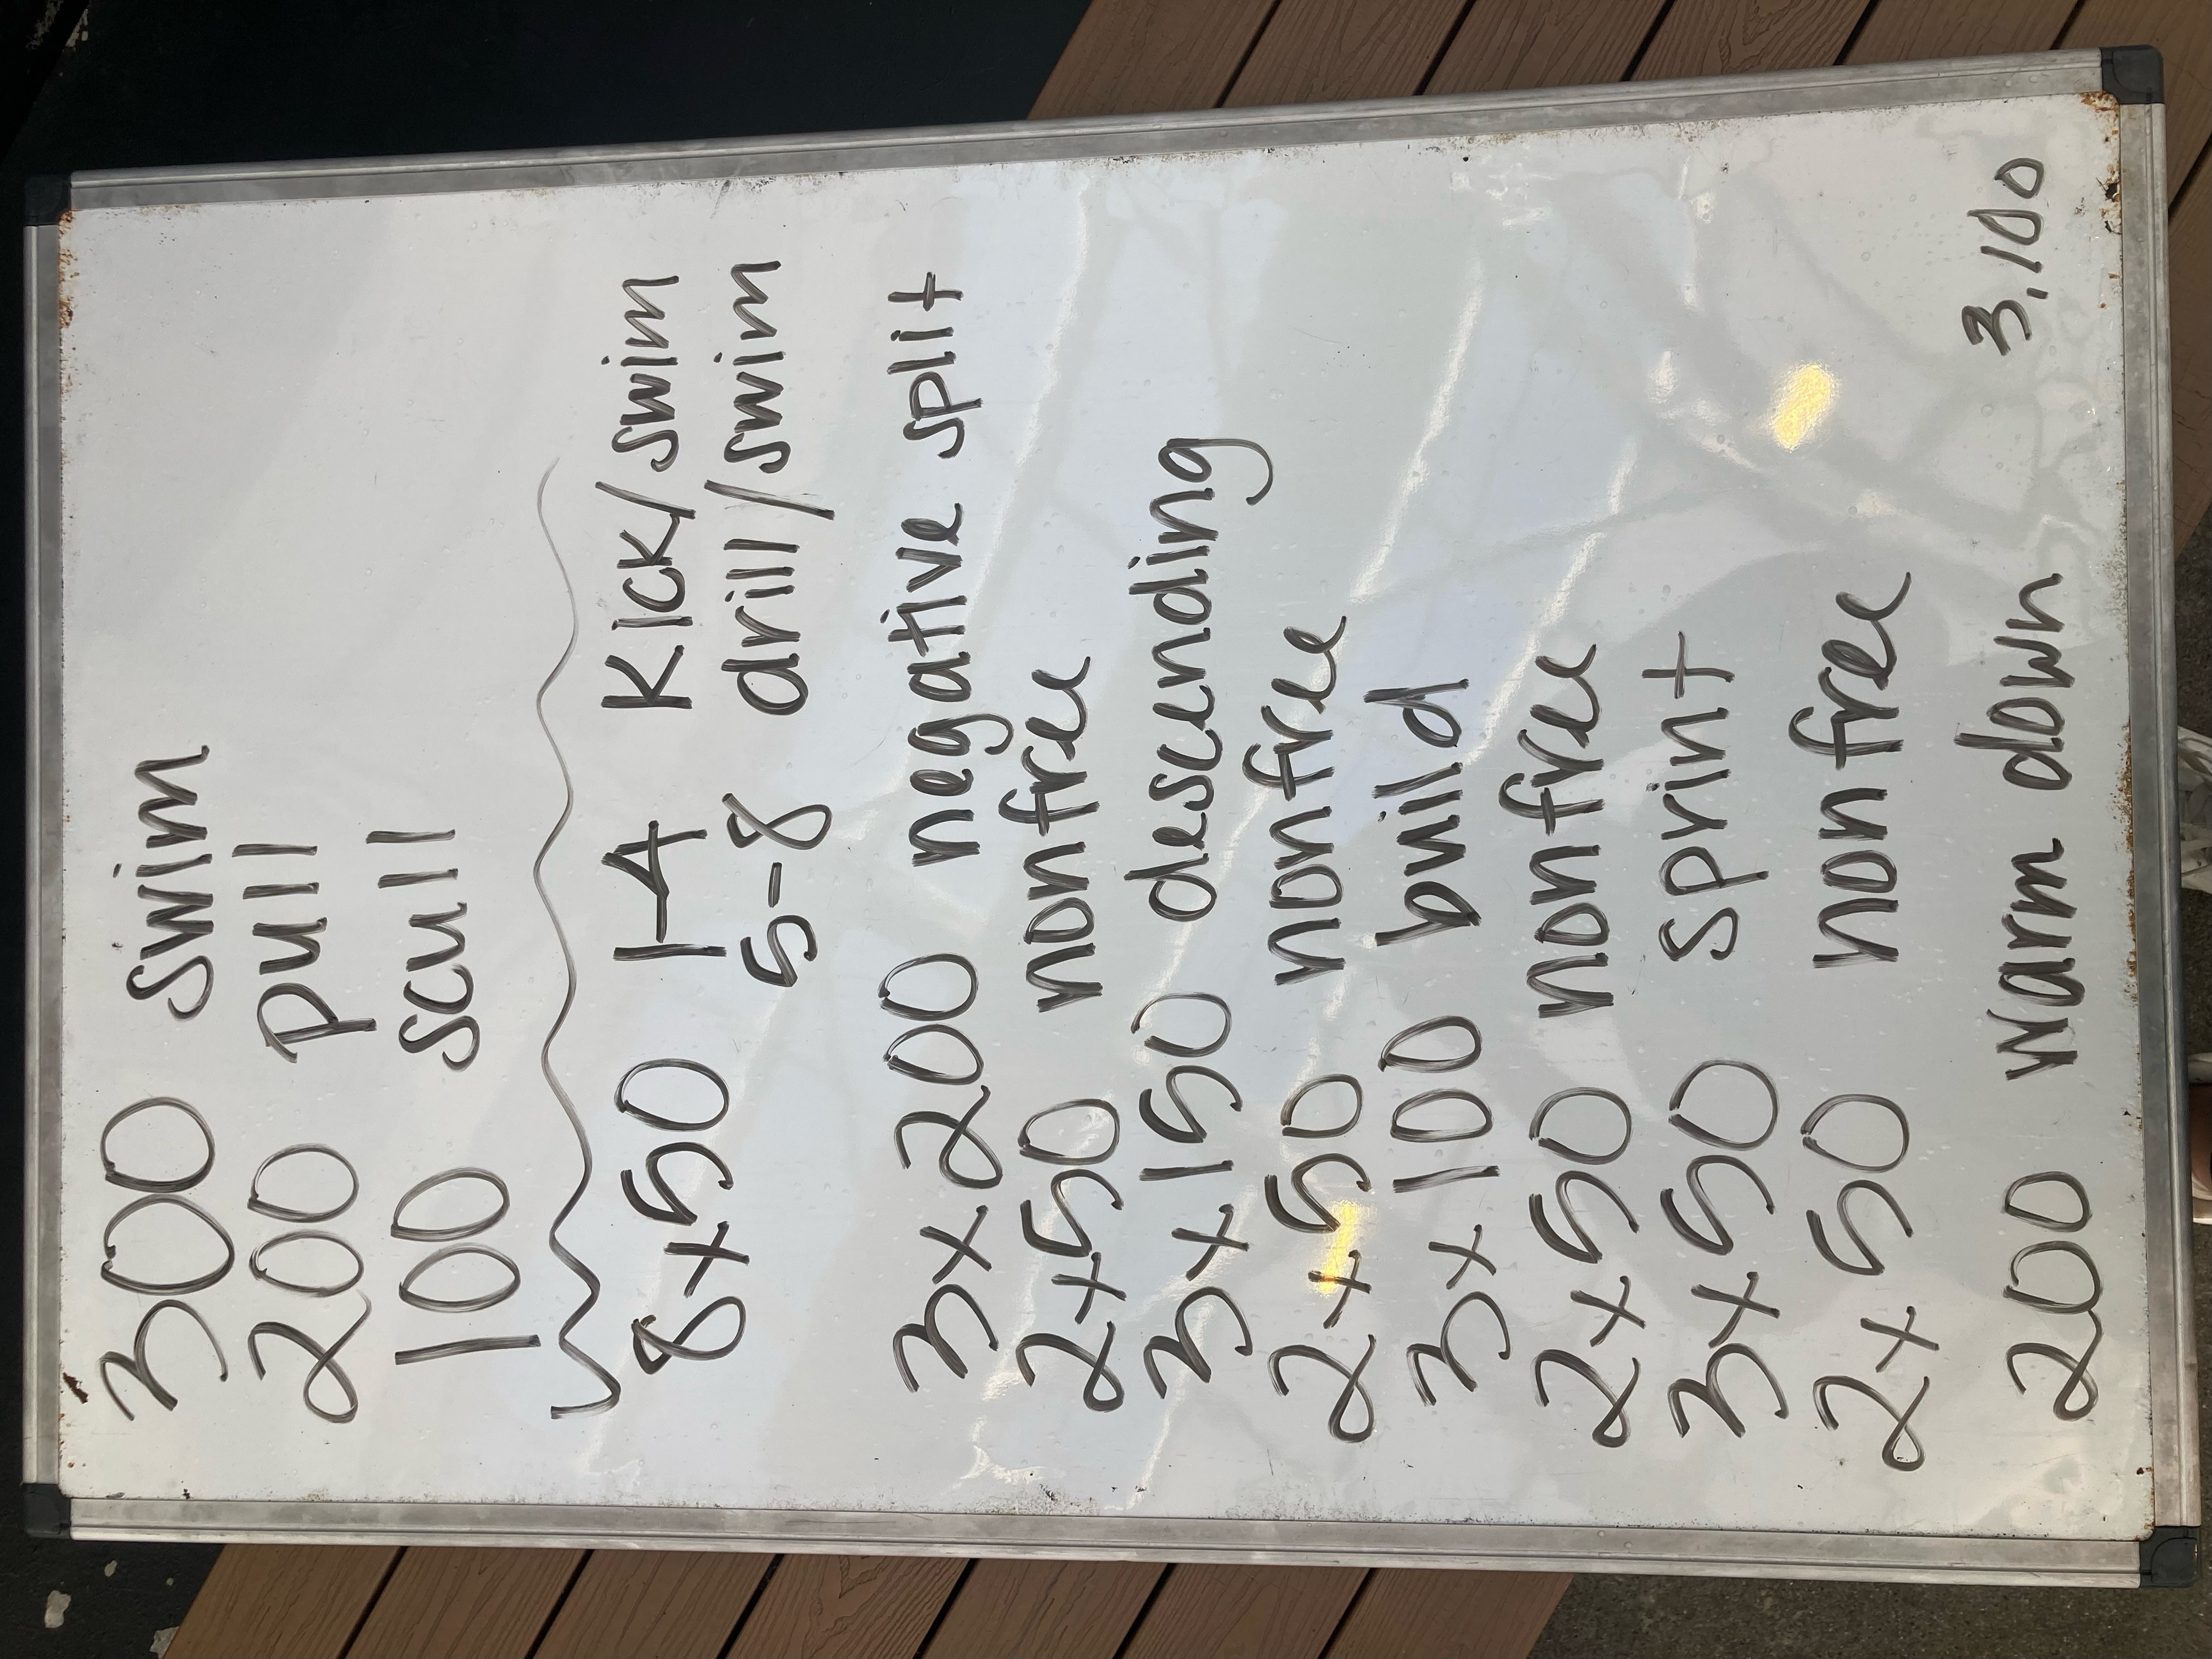 300 swim
200 pull
100 scull
8x50 1-4 Kick/swim
5-8 drill/swim
3x200 negative split
2x50 non free
3x150 descending
2x50 non free
3x100 build
2x50 non free
3x50 sprint
2x50 non free
200 warm down 3,100